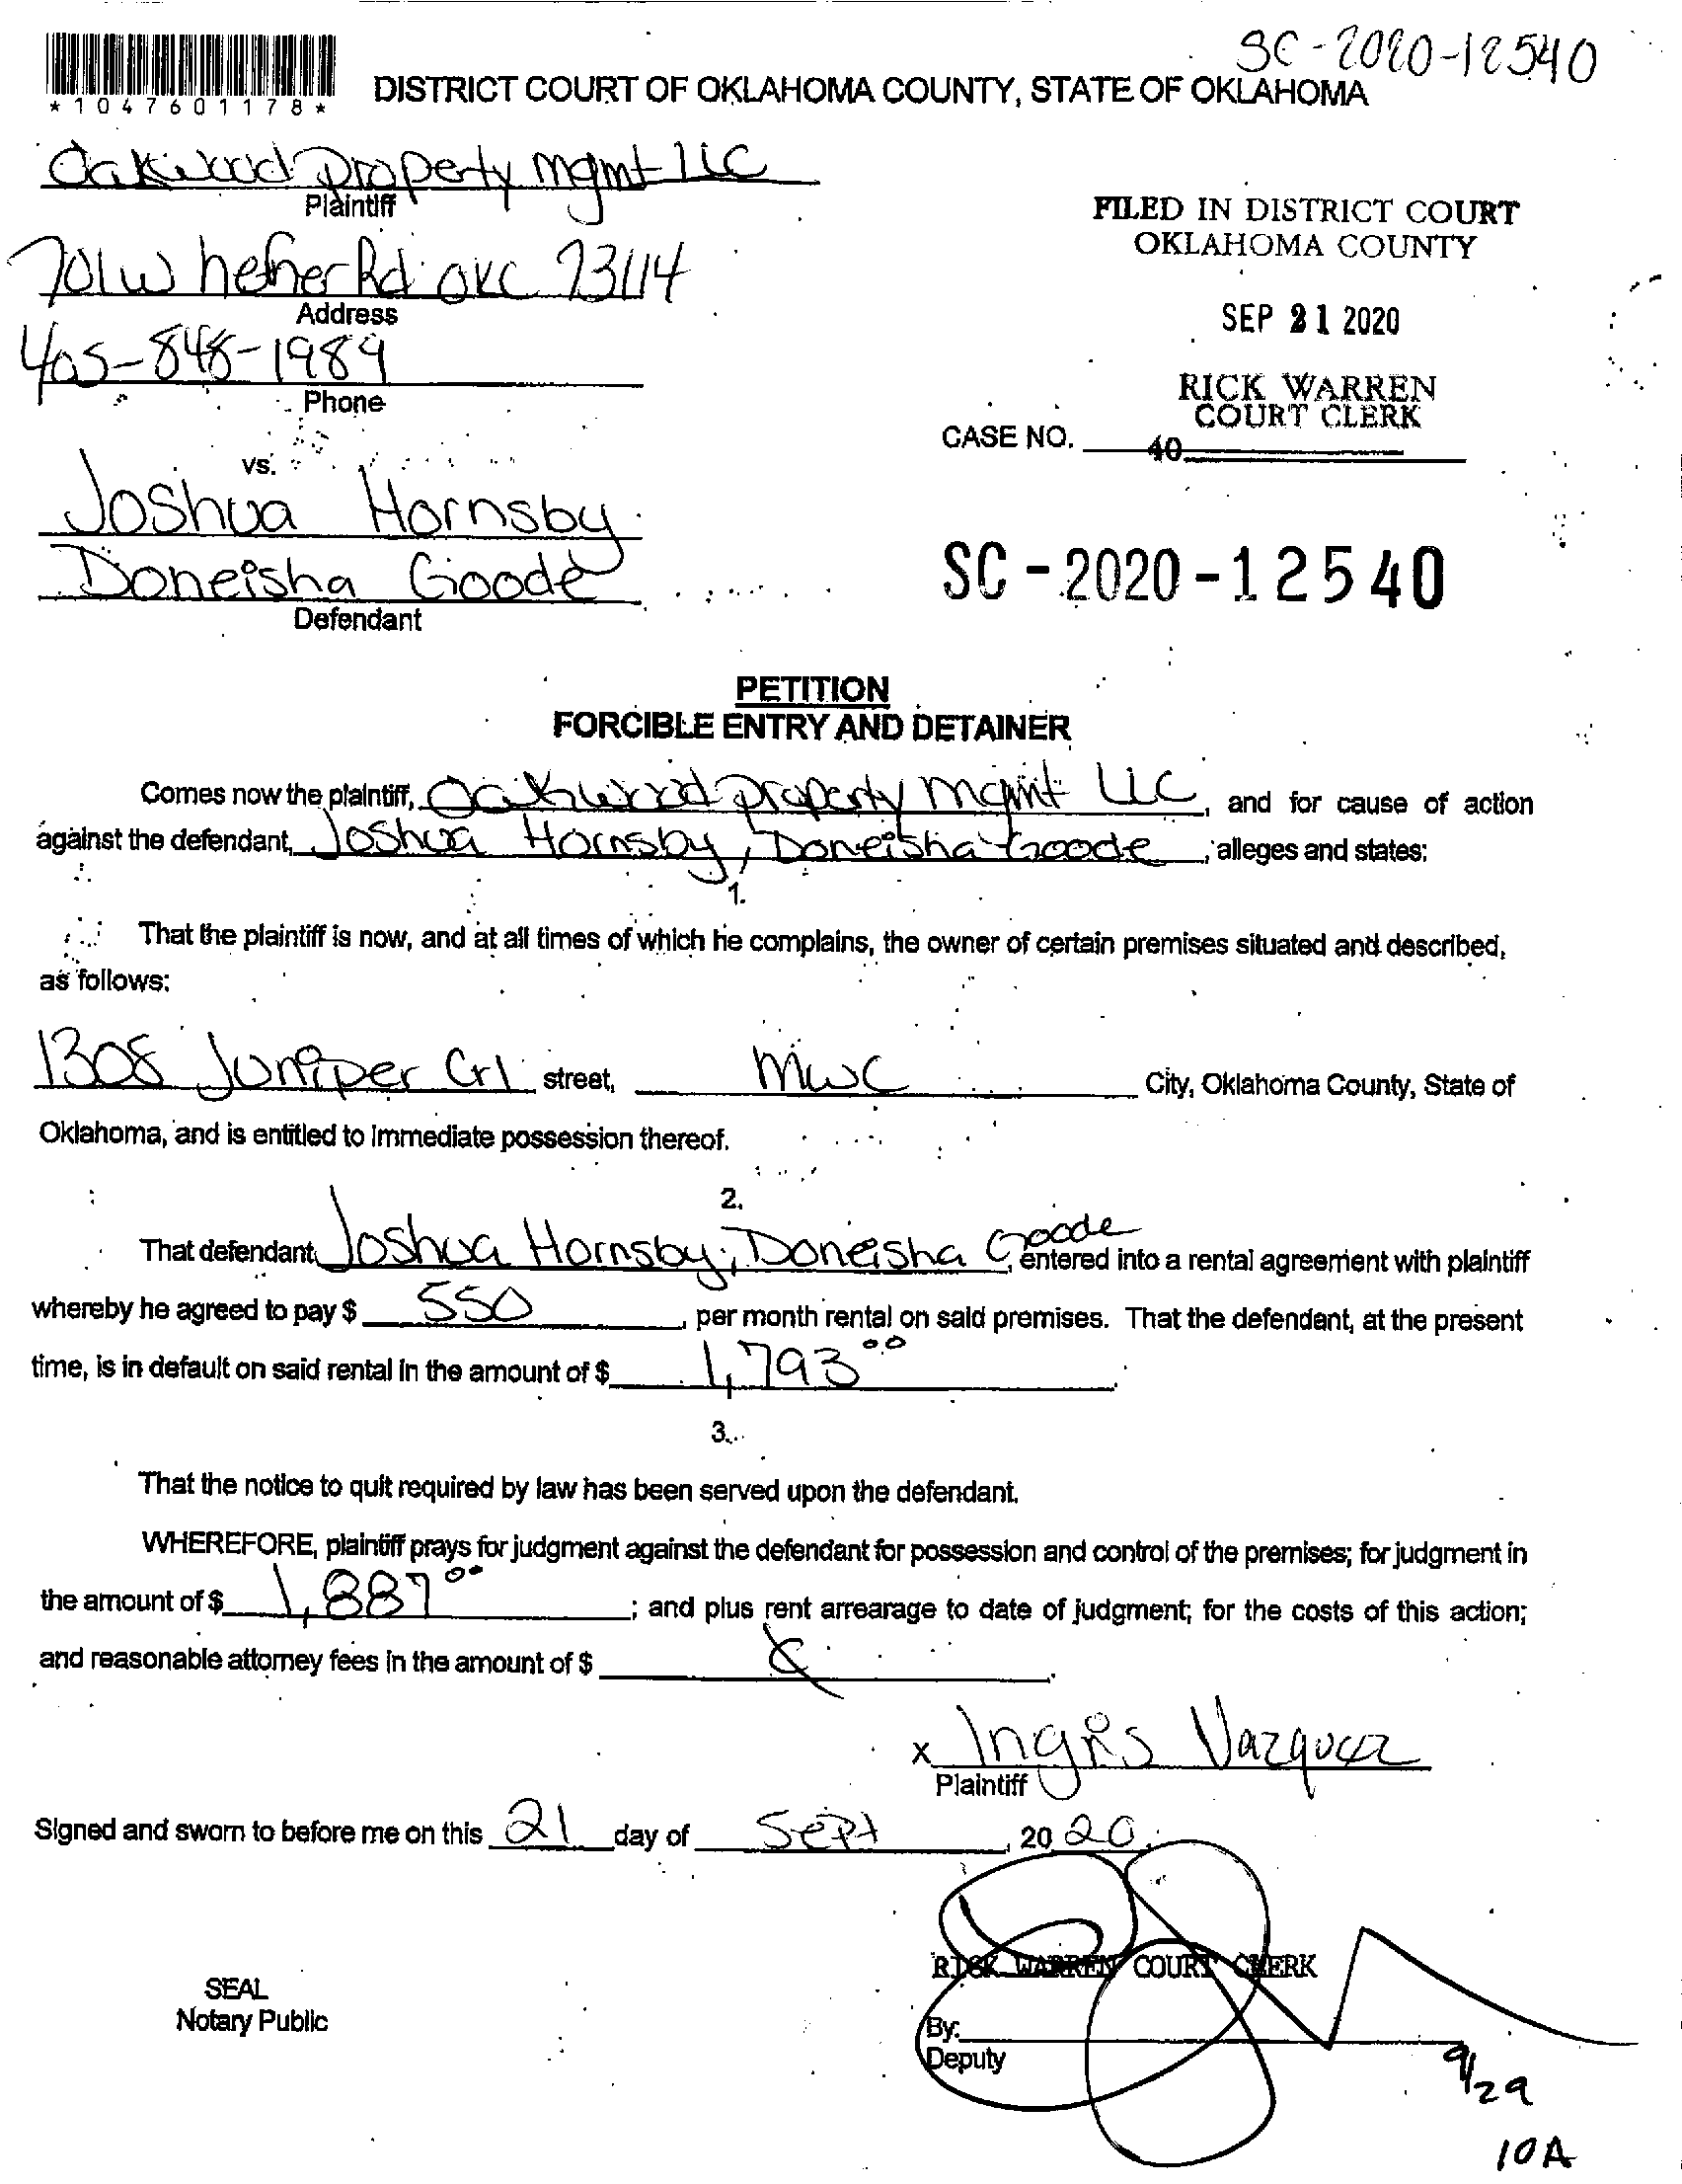 SC-2020-12540
*1047601178*
DISTRICT COURT OF OKLAHOMA COUNTY, STATE OF OKLAHOMA
Oakwood Property mgmt LLC
Plaintiff
FILED IN DISTRICT COURT
OKLAHOMA COUNTY
701 W hefner Rd OKC 73114
Address
SEP 21 2020
405-848-1989
Phone
RICK WARREN
COURT CLERK
CASE NO.
40
vs.
Joshua Hornsby
Doneisha Goode
Defendant
SC-2020-12540
PETITION
FORCIBLE ENTRY AND DETAINER
Comes now the plaintiff, Oakwood property mgmt LLC, and for cause of action
against the defendant, Joshua Hornsby, Doneisha Goode, alleges and states:
1.
That the plaintiff is now, and at all times of which he complains, the owner of certain premises situated and described,
as follows:
1308 Juniper Crl street, MWC City, Oklahoma County, State of
Oklahoma, and is entitled to immediate possession thereof.
2.
That defendant, Joshua Hornsby, Doneisha Goode, entered into a rental agreement with plaintiff
whereby he agreed to pay $ 550, per month rental on said premises. That the defendant, at the present
time, is in default on said rental in the amount of $ 1,793 00.
3.
That the notice to quit required by law has been served upon the defendant.
WHEREFORE, plaintiff prays for judgment against the defendant for possession and control of the premises; for judgment in
the amount of $ 1,887 00; and plus rent arrearage to date of judgment; for the costs of this action;
and reasonable attorney fees in the amount of $
x Ingris Vazquez
Plaintiff
Signed and sworn to before me on this 21 day of Sept, 2020.
RICK WARREN COURT CLERK
SEAL
Notary Public
By:
Deputy
9/29
10A